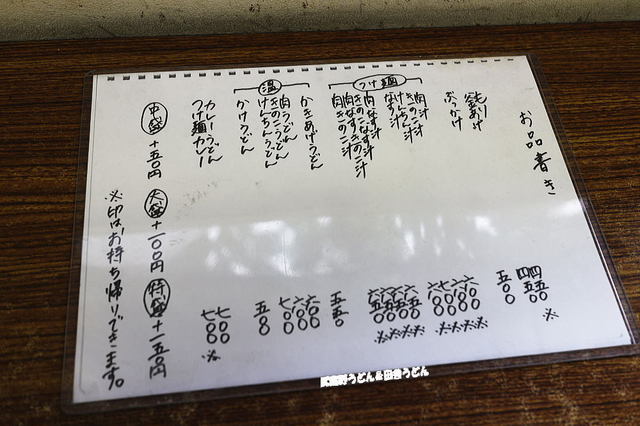 お品書き
もり 四五〇 ※
釜あげ 四五〇
ぶっかけ 五〇〇
つけ麺
肉汁 六〇〇 ※
きのこ汁 六〇〇 ※
けんちん汁 七〇〇 ※
なす汁 六〇〇 ※
肉なす汁 ※
きのこなす汁 ※
肉なすきのこ汁 ※
肉きのこ汁 ※
かきあげうどん 五五〇
温
肉うどん 六〇〇
きのこうどん 六〇〇
けんちんうどん 七〇〇
かけうどん
カレーうどん 七〇〇
つけ麺カレー 七〇〇 ※
中盛+五〇円 大盛+一〇〇円 特盛+一五〇円
※印はお持ち帰りできます。
武蔵野うどん&田舎うどん